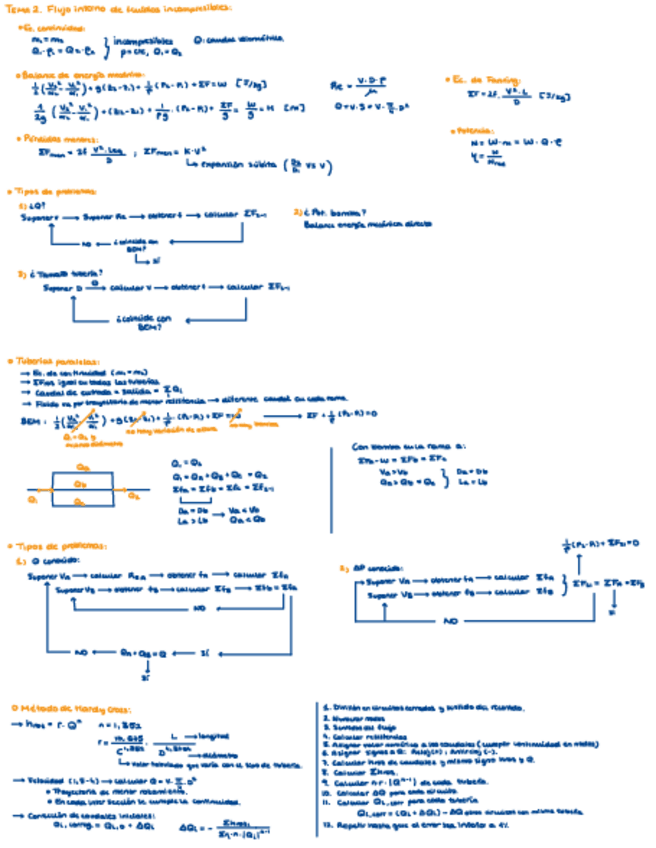 TEMA 2. Flujo interno de fluidos incompresibles:
• Ec. continuidad:
m₁ = m₂
Q₁·ρ₁ = Q₂·ρ₂ } incompresibles ρ = cte, Q₁ = Q₂
Q: caudal volumétrico.
• Balance de energía mecánica:
½(V₂²/α₂ - V₁²/α₁) + g(z₂-z₁) + 1/ρ (P₂-P₁) + ΣF = W [J/kg]
1/2g (V₂²/α₂ - V₁²/α₁) + (z₂-z₁) + 1/ρg · (P₂-P₁) + ΣF/g = W/g = H [m]
Re = V·D·ρ/μ
Q = V·S = V·π/4·D²
• Ec. de Fanning:
ΣF = 2f · V²·L/D [J/kg]
• Pérdidas menores:
ΣFmen = 2f V²·Leq/D ; ΣFmen = K·V²
↳ expansión súbita (D₂/D₁ vs V)
• Potencia:
N = W·m = W·Q·ρ
η = N/Nreal
• Tipos de problemas:
1) ¿Q?
Suponer v → Suponer Re → obtener f → calcular ΣF₂₋₁
NO ← ¿coincide con BEM?
↳ SÍ
2) ¿Pot. bomba?
Balance energía mecánica directo
3) ¿Tamaño tubería?
Suponer D → calcular V → obtener f → calcular ΣF₂₋₁
¿coincide con BEM?
• Tuberías paralelas:
→ Ec. de continuidad (m₁ = m₂)
→ ΣF es igual en todas las tuberías
→ Caudal de entrada = salida = ΣQi
→ Fluido va por trayectoria de menor resistencia → diferente caudal en cada rama
BEM: ½(V₂²/α₂ - V₁²/α₁) + g(z₂-z₁) + 1/ρ (P₂-P₁) + ΣF = W → ΣF + 1/ρ (P₂-P₁) = 0
Q₁ = Q₂ y mismo diámetro
no hay variación de altura
no hay bomba
Qa
Qb
Qc
Q₁
Q₂
Q₁ = Q₂
Q₁ = Qa + Qb + Qc = Q₂
Σfa = Σfb = Σfc = ΣF₂₋₁
Da = Db
La > Lb → Va < Vb
Qa < Qb
Con bomba en la rama a:
ΣFa - W = ΣFb = ΣFc
Va > Vb
Qa > Qb = Qc } Da = Db
La = Lb
• Tipos de problemas:
1) Q conocido:
Suponer VA → calcular ReA → obtener fA → calcular ΣfA
Suponer VB → obtener fB → calcular ΣfB → ΣfB = ΣfA
NO
NO ← QA + QB = Q ← SÍ
SÍ
2) ΔP conocido:
1/ρ(P₂-P₁) + ΣF₂₁ = 0
Suponer VA → obtener fA → calcular ΣfA
Suponer VB → obtener fB → calcular ΣfB } ΣF₂₁ = ΣFA = ΣFB
NO
SÍ
O Método de Hardy Cross:
→ hroz = r · Qⁿ n = 1,852
r = /C^1,852 · L/D → longitud
→ diámetro
↳ valor tabulado que varía con el tipo de tubería.
→ Velocidad (1,5-4) → calcular Q = V·π/4·D²
• Trayectoria de menor rozamiento.
• En cada intersección se cumple la continuidad.
→ Corrección de caudales iniciales:
Qi, corrg. = Qi,0 + ΔQi ΔQi = - Σhroz/Σr·n·|Qi|ⁿ⁻¹
1. División en circuitos cerrados y sentido del recorrido.
2. Numerar nodos
3. Sentido del flujo
4. Calcular resistencias
5. Asignar valor numérico a los caudales (cumplir continuidad en nodos)
6. Asignar signos a Q: Reloj(+); Antireloj(-).
7. Calcular hroz de caudales y mismo signo hroz y Q.
8. Calcular Σhroz.
9. Calcular n·r·|Qⁿ⁻¹| de cada tubería.
10. Calcular ΔQ para cada circuito.
11. Calcular Qi,corr para cada tubería
Qi,corr = (Qi + ΔQi) - ΔQ otros circuitos con misma tubería
12. Repetir hasta que el error sea inferior a 1%